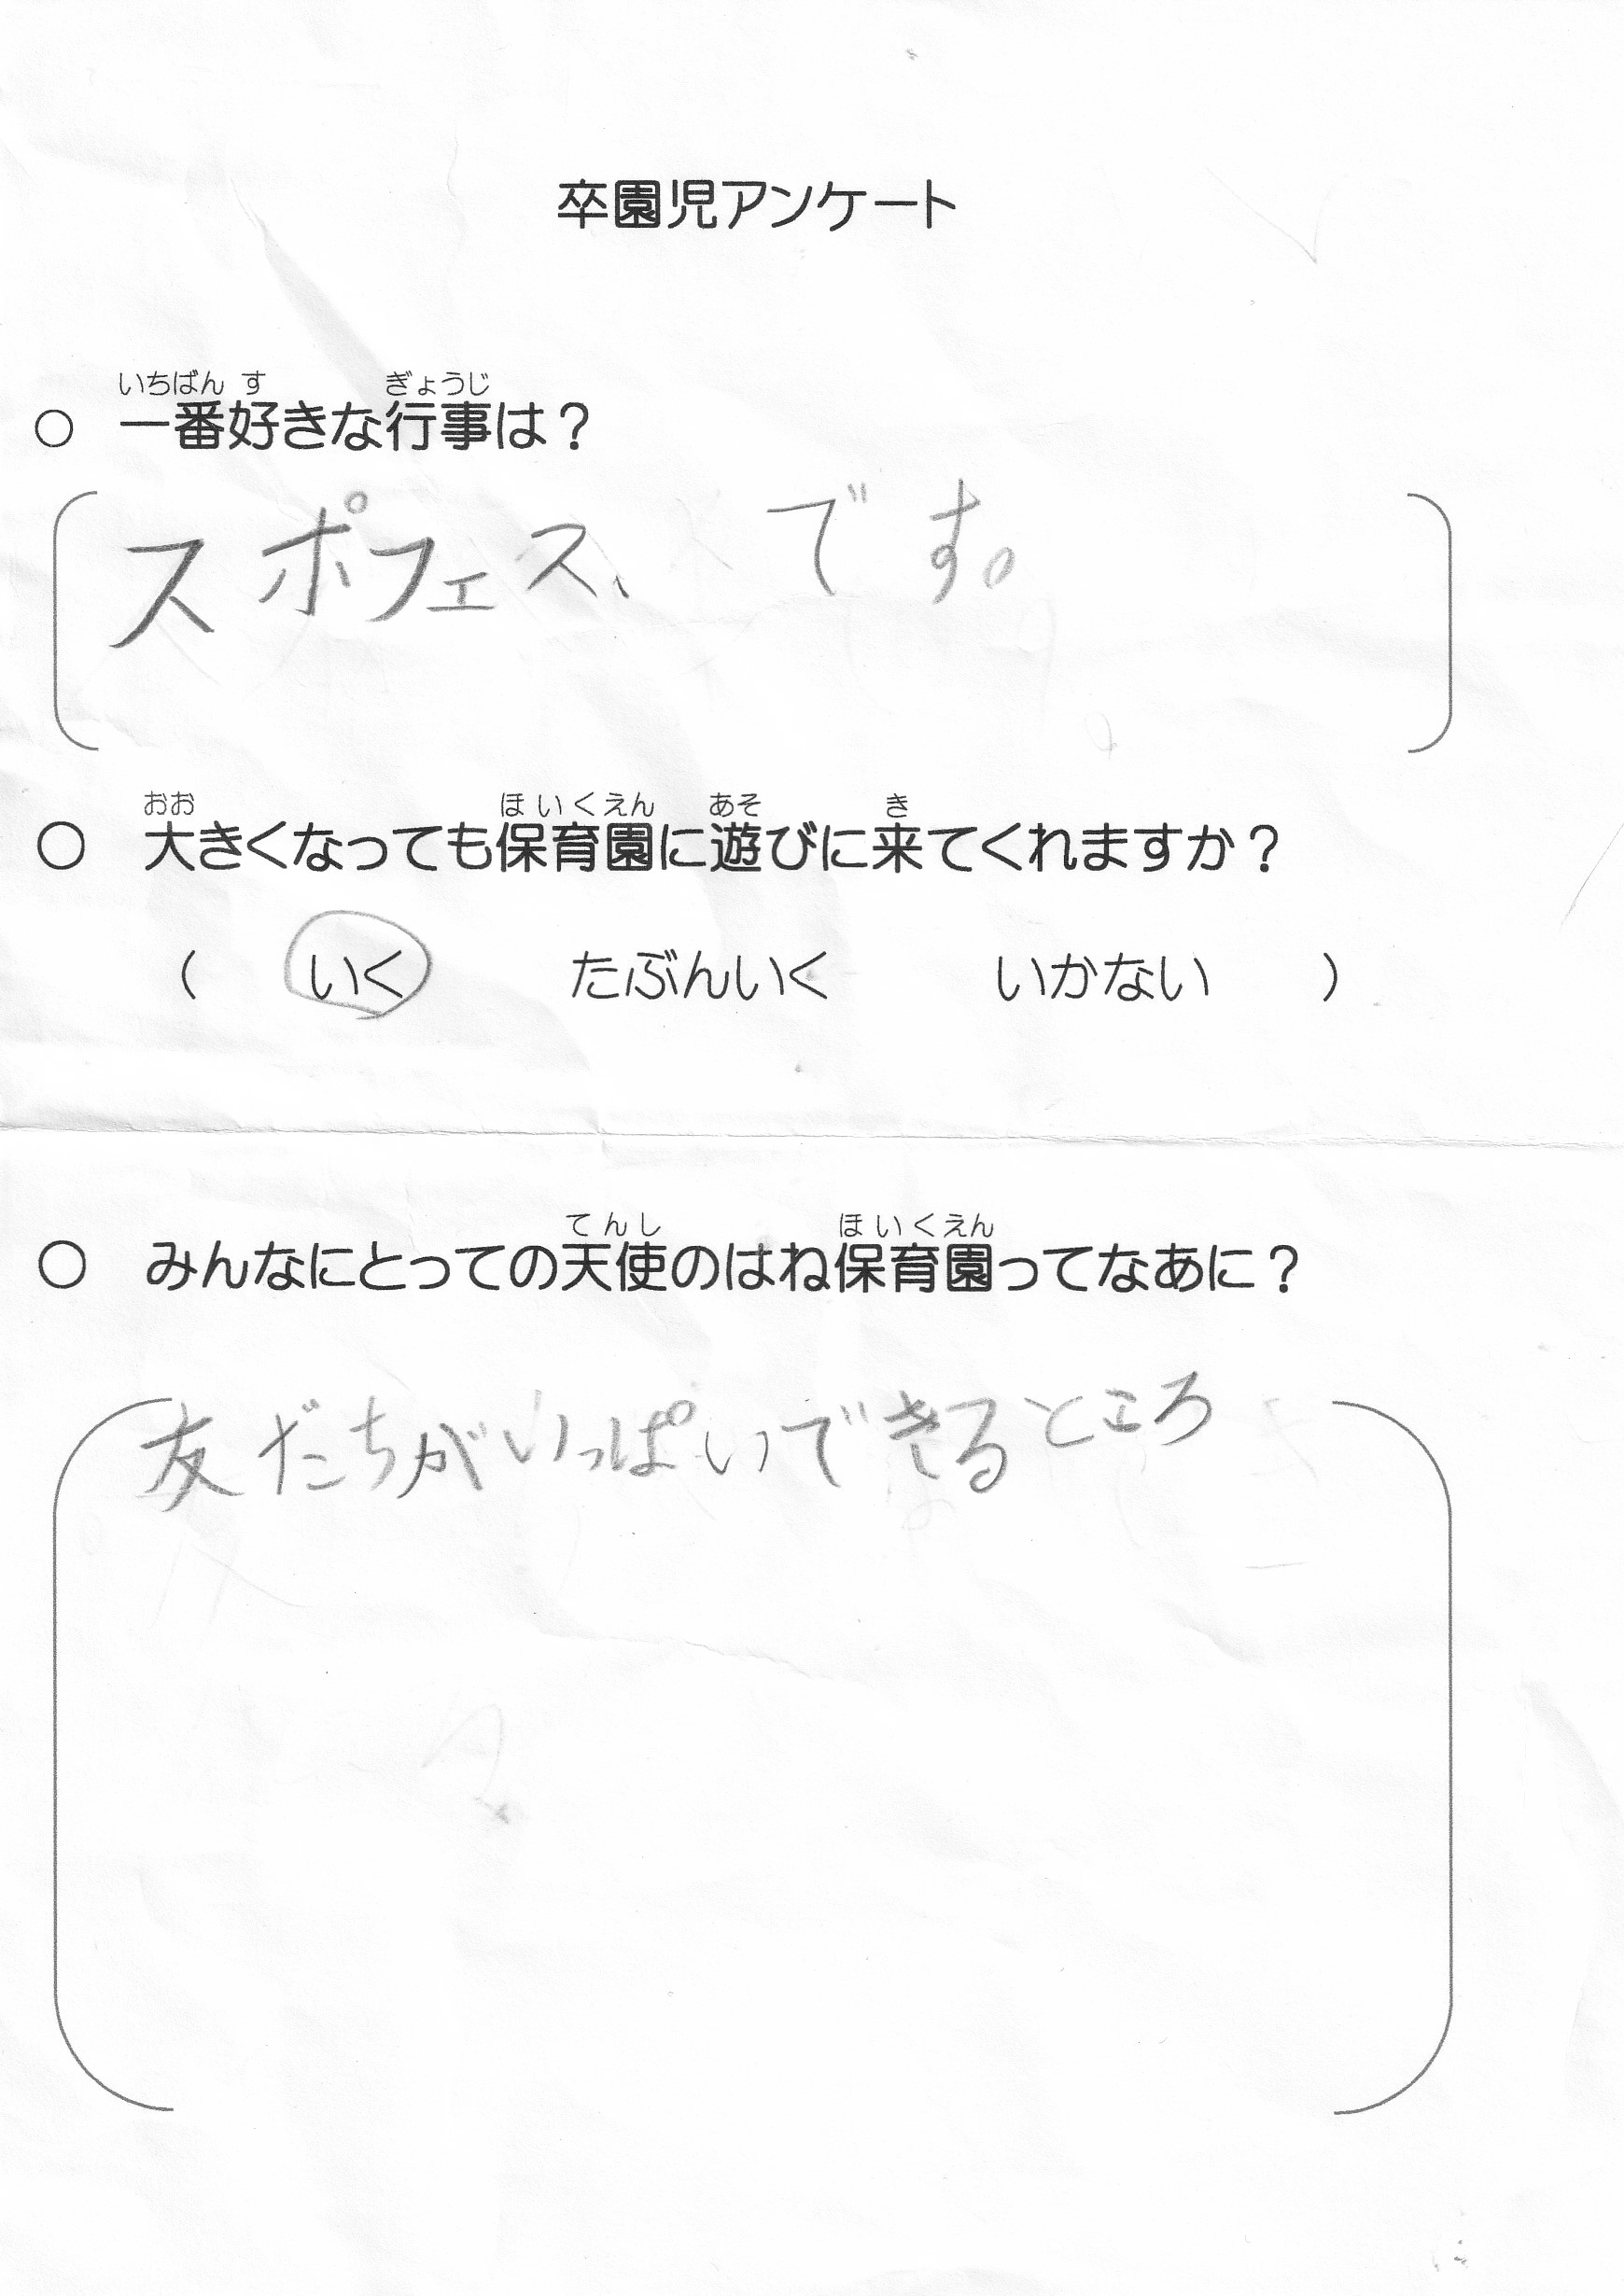 卒園児アンケート
いちばん す ぎょうじ
○ 一番好きな行事は?
スポフェス、です。
おお ほいくえん あそ き
○ 大きくなっても保育園に遊びに来てくれますか?
( いく たぶんいく いかない )
てんし ほいくえん
○ みんなにとっての天使のはね保育園ってなあに?
友だちがいっぱいできるところ